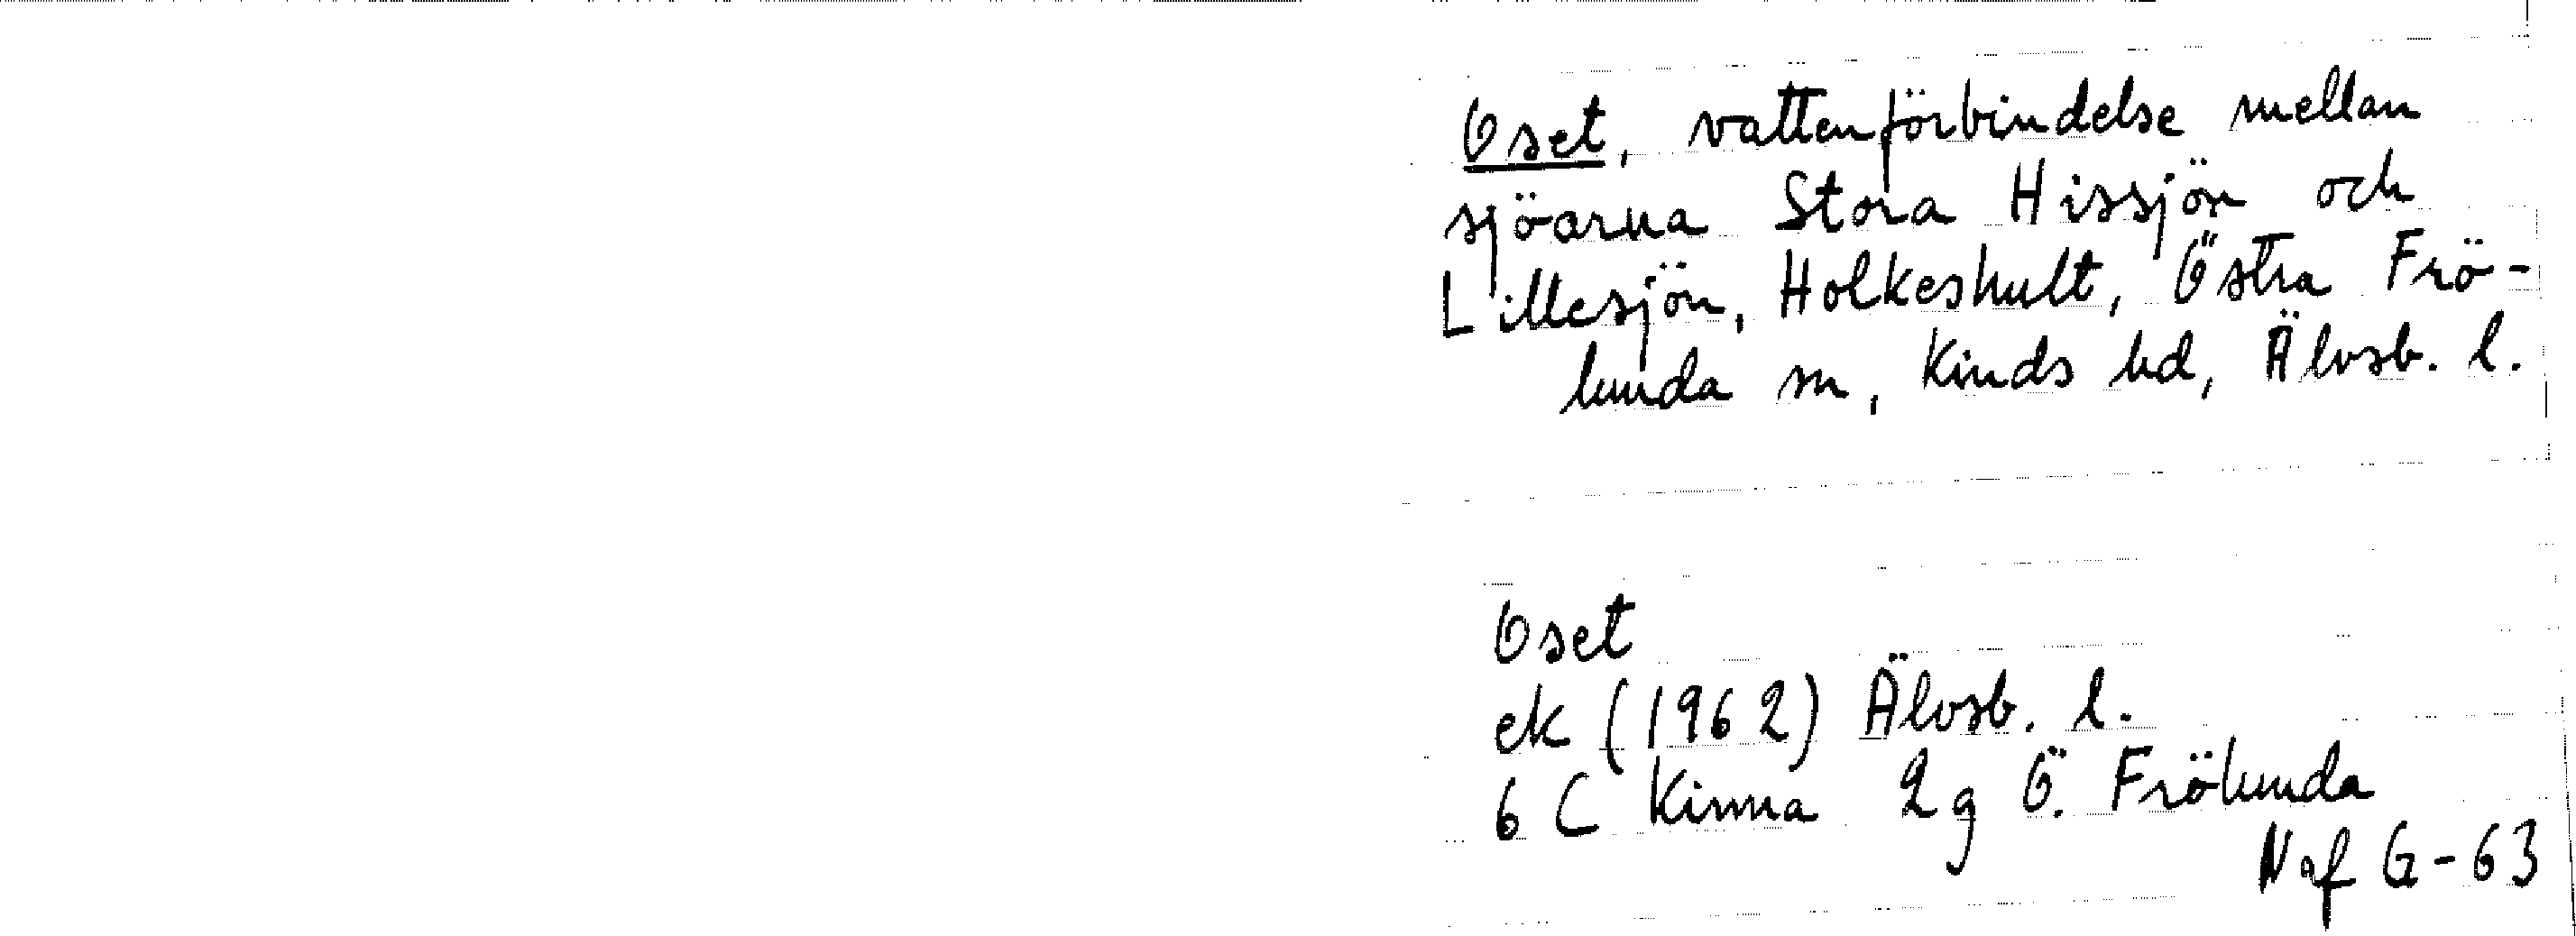 Oset, vattenförbindelse mellan
sjöarna Stora Hissjön och
Lillesjön, Holkeshult, Östra Frö-
lunda sn, Kinds hd, Älvsb. l.
Oset
ek (1962) Älvsb. l.
6 C Kinna 2g Ö. Frölunda
Naf G-63